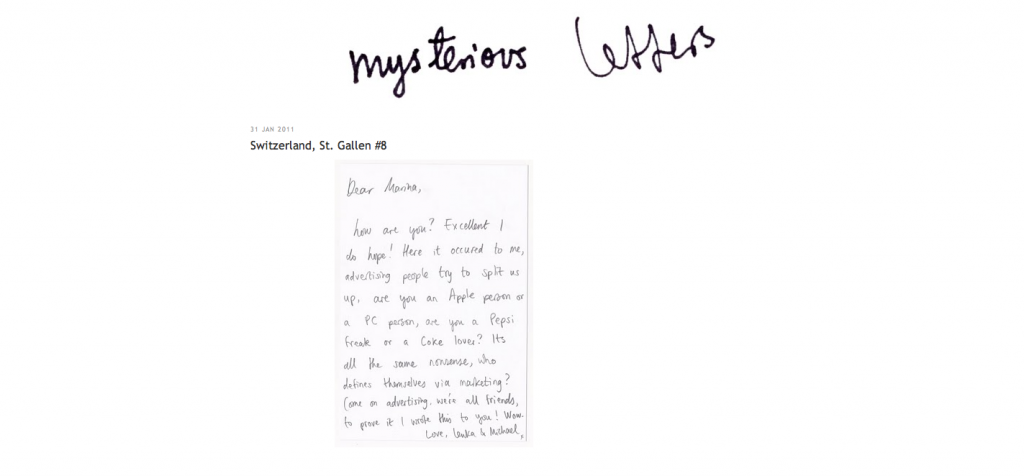 mysterious letters
31 JAN 2011
Switzerland, St. Gallen #8
Dear Marina,
how are you? Excellent I
do hope! Here it occured to me,
advertising people try to split us
up, are you an Apple person or
a PC person, are you a Pepsi
freak or a Coke lover? Its
all the same nonsense, who
defines themselves via marketing?
Come on advertising. we're all friends,
to prove it I wrote this to you! Wow.
Love, Lenka & Michael,